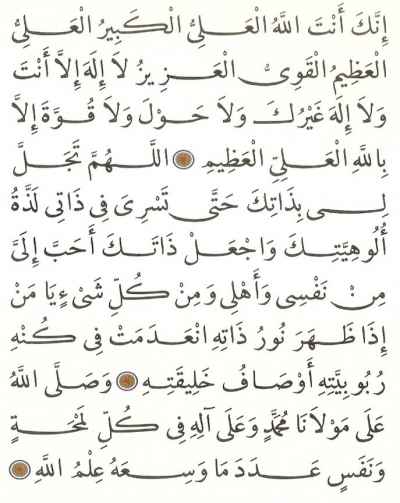 إِنَّكَ أَنْتَ اللَّهُ الْعَلِىُّ الْكَبِيرُ الْعَلِىُّ
الْعَظِيمُ الْقَوِىُّ الْعَزِيزُ لَا إِلَهَ إِلَّا أَنْتَ
وَلَا إِلَهَ غَيْرُكَ وَلَا حَوْلَ وَلَا قُوَّةَ إِلَّا
بِاللَّهِ الْعَلِىِّ الْعَظِيمِ اللَّهُمَّ تَجَلَّ
لِى بِذَاتِكَ حَتَّى تَسْرِىَ فِى ذَاتِى لَذَّةُ
أُلُوهِيَّتِكَ وَاجْعَلْ ذَاتَكَ أَحَبَّ إِلَىَّ
مِنْ نَفْسِى وَأَهْلِى وَمِنْ كُلِّ شَىْءٍ يَا مَنْ
إِذَا ظَهَرَ نُورُ ذَاتِهِ انْعَدَمَتْ فِى كُنْهِ
رُبُوبِيَّتِهِ أَوْصَافُ خَلِيقَتِهِ وَصَلَّى اللَّهُ
عَلَى مَوْلَانَا مُحَمَّدٍ وَعَلَى آلِهِ فِى كُلِّ لَمْحَةٍ
وَنَفَسٍ عَدَدَ مَا وَسِعَهُ عِلْمُ اللَّهِ